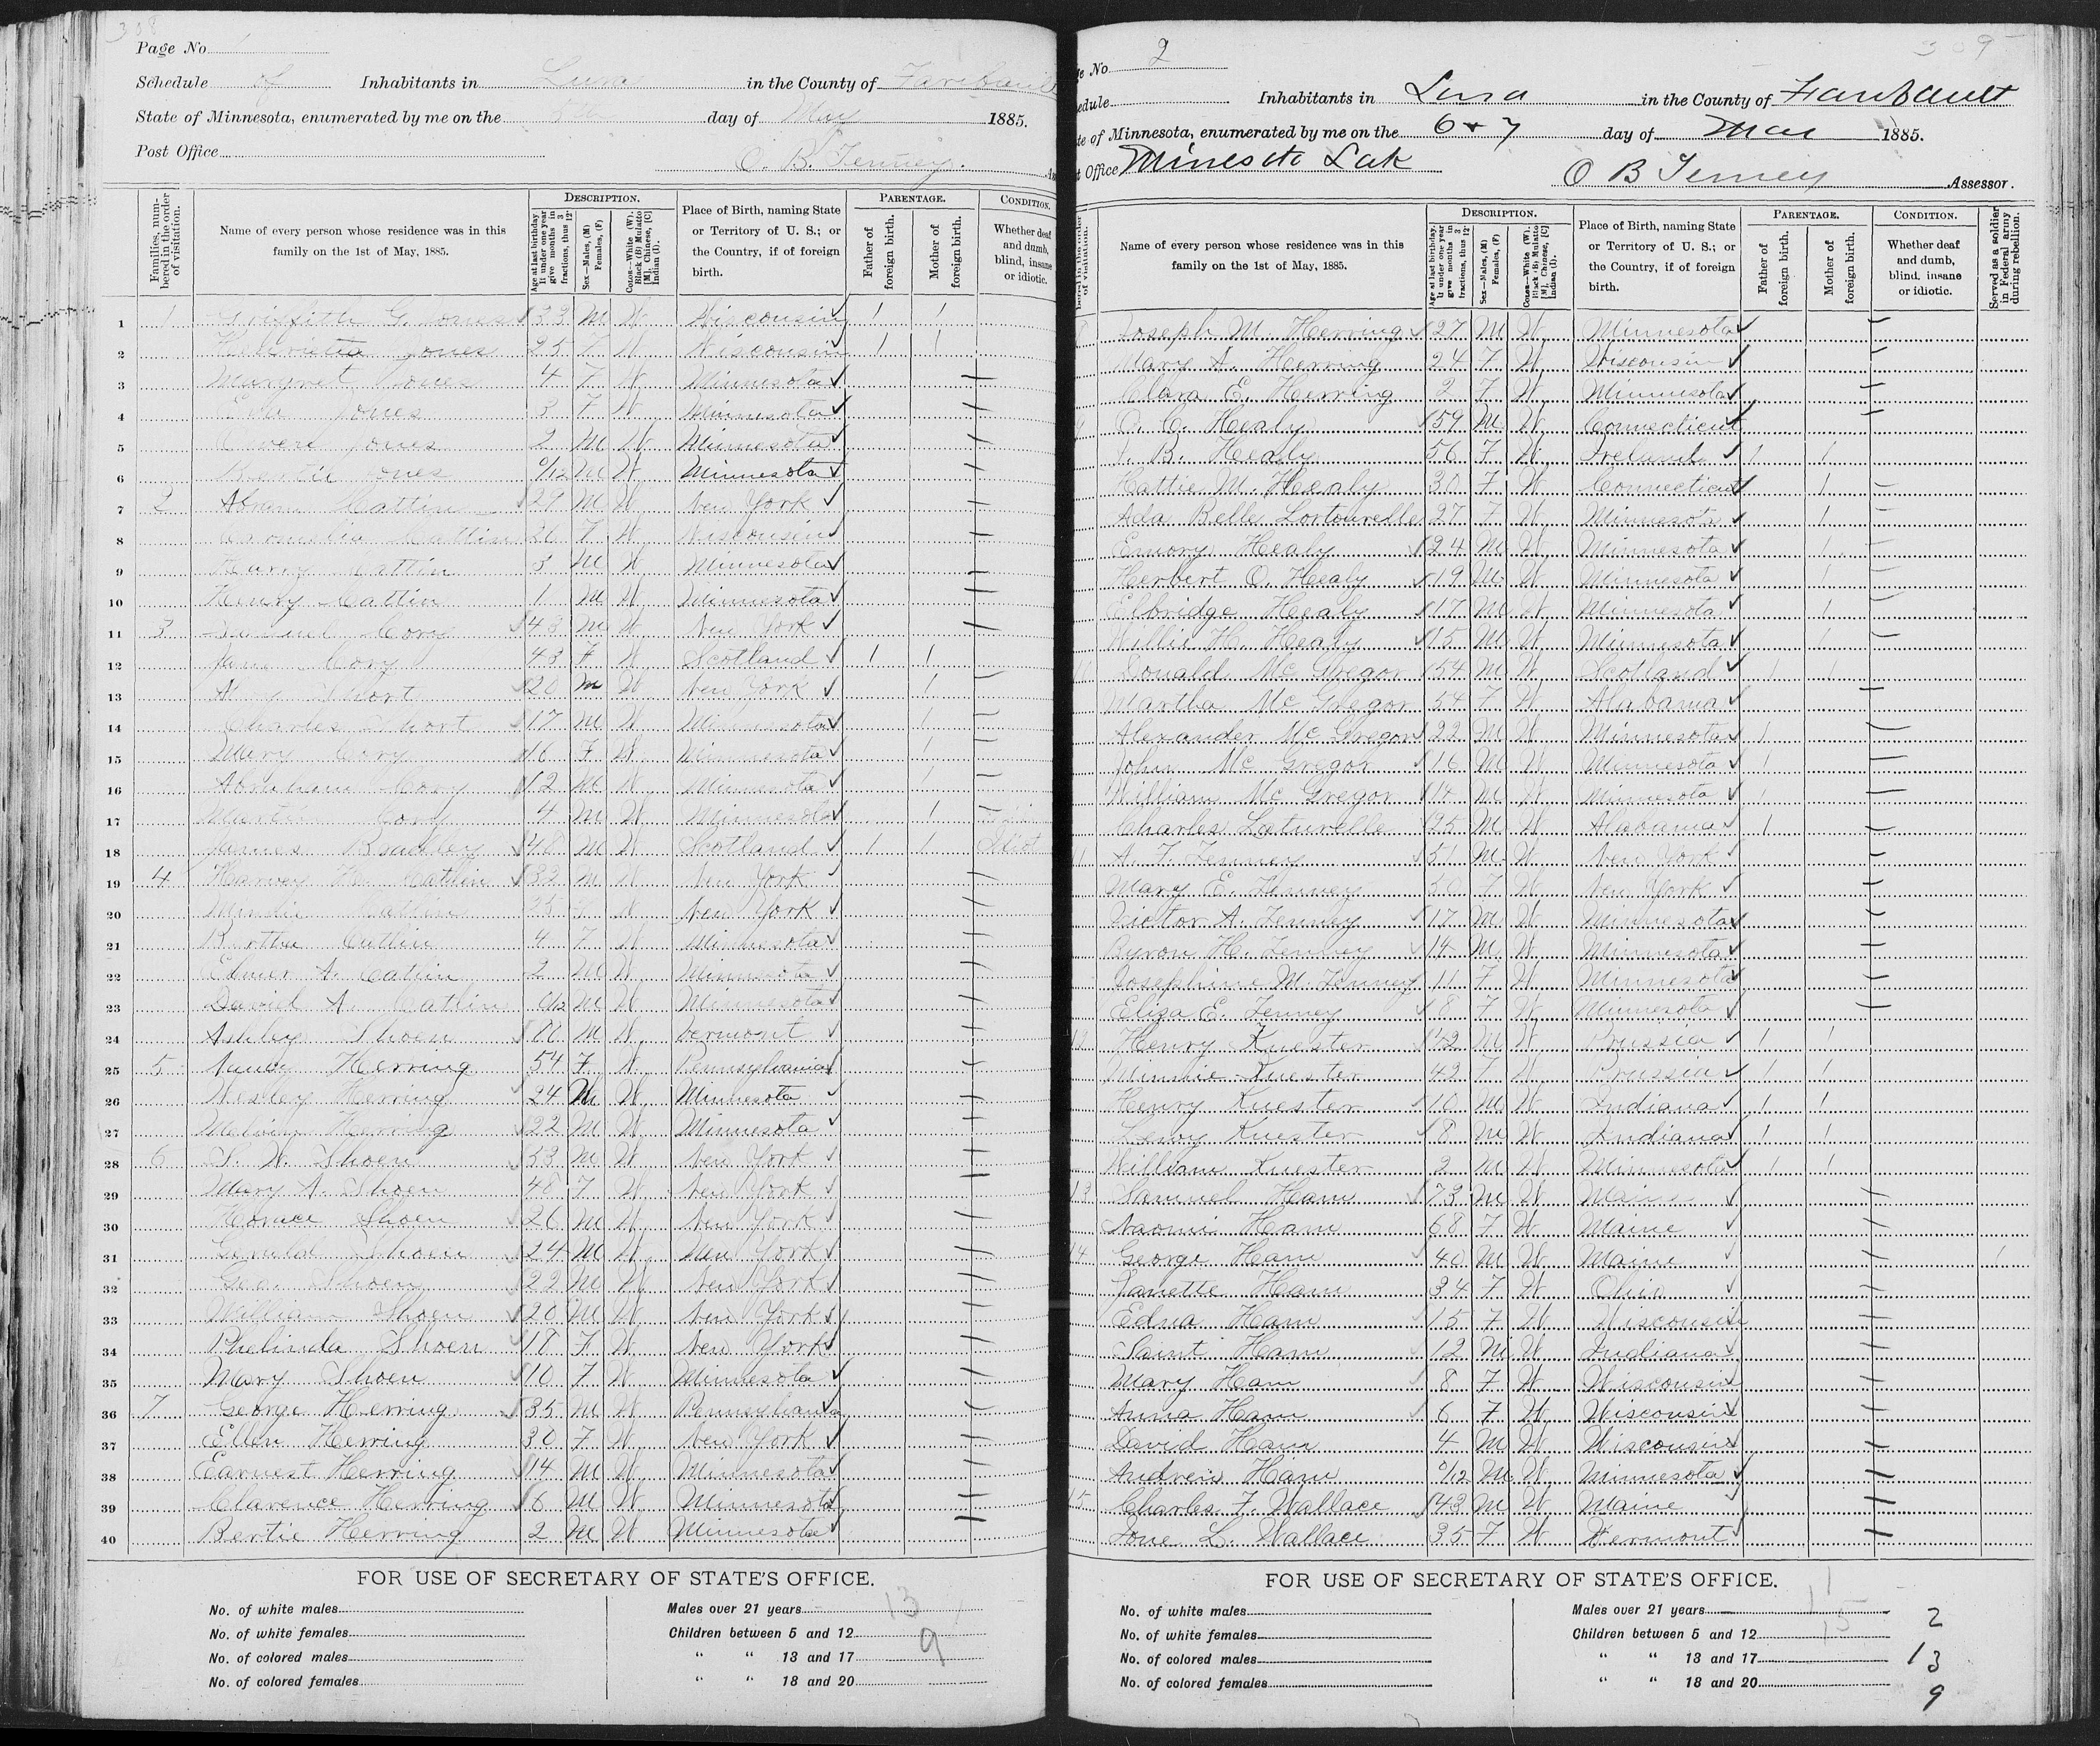 Page No
Schedule of Inhabitants in Lura in the County of Faribault
State of Minnesota, enumerated by me on the 5th day of May 1885.
Post Office
O. B. Tenney.
Families, num-
bered in the order
of visitation.
Name of every person whose residence was in this
family on the 1st of May, 1885.
DESCRIPTION.
Age at last birthday.
If under one year
give months in
fractions, thus 3/12
Sex—Males, (M)
Females, (F)
COLOR—White (W),
Black (B) Mulatto
[M], Chinese, [C]
Indian (I).
Place of Birth, naming State
or Territory of U. S.; or
the Country, if of foreign
birth.
PARENTAGE.
Father of
foreign birth.
Mother of
foreign birth.
CONDITION.
Whether deaf
and dumb,
blind, insane
or idiotic.
1 1 Griffith G. Jones 33 M W Wisconsin 1 1
2 Henrietta Jones 25 F W Wisconsin 1 1
3 Margret Jones 4 F W Minnesota
4 Eda Jones 3 F W Minnesota
5 Owen Jones 2 M W Minnesota
6 Bertie Jones 0/12 M W Minnesota
7 2 Abram Cattin 29 M W New York
8 Cattin 26 F W Wisconsin
9 Harry Cattin 3 M W Minnesota
10 Henry Cattin 1 M W Minnesota
11 3 Cory 48 M W New York
12 Jane Cory 43 F W Scotland 1 1
13 Short 20 M W New York 1
14 Charles Short 17 M W Minnesota 1
15 Mary Cory 16 F W Minnesota 1
16 Abraham Cory 12 M W Minnesota 1
17 Martin Cory 4 M W Minnesota 1
18 James Bradley 48 M W Scotland 1 1 Idiot
19 4 Harvey H. Catlin 32 M W New York
20 Mindie Catlin 25 F W New York
21 Bertha Catlin 4 F W Minnesota
22 Elmer A. Catlin 2 M W Minnesota
23 David A. Catlin 0/12 M W Minnesota
24 Ashley Shoen M W Vermont
25 5 Nancy Herring 54 F W Pennsylvania
26 Wesley Herring 24 M W Minnesota
27 Melvin Herring 22 M W Minnesota
28 6 S. W. Shoen 53 M W New York
29 Mary A. Shoen 48 F W New York
30 Horace Shoen 26 M W New York
31 Shoen 24 M W New York
32 Geo. Shoen 22 M W New York
33 William Shoen 20 M W New York
34 Phelinda Shoen 18 F W New York
35 Mary Shoen 10 F W Minnesota
36 7 George Herring 35 M W Pennsylvania
37 Ellen Herring 30 F W New York
38 Earnest Herring 14 M W Minnesota
39 Clarence Herring 6 M W Minnesota
40 Bertie Herring 2 M W Minnesota
FOR USE OF SECRETARY OF STATE'S OFFICE.
No. of white males
No. of white females
No. of colored males
No. of colored females
Males over 21 years 13
Children between 5 and 12 9
" " 13 and 17
" " 18 and 20
309
Page No 2
Schedule Inhabitants in Lura in the County of Faribault
State of Minnesota, enumerated by me on the 6 + 7 day of May 1885.
Post Office Minesota Lak
O B Tenney Assessor.
Name of every person whose residence was in this
family on the 1st of May, 1885.
DESCRIPTION.
Age at last birthday.
If under one year
give months in
fractions, thus 3/12
Sex—Males, (M)
Females, (F)
COLOR—White (W),
Black (B) Mulatto
[M], Chinese, [C]
Indian (I).
Place of Birth, naming State
or Territory of U. S.; or
the Country, if of foreign
birth.
PARENTAGE.
Father of
foreign birth.
Mother of
foreign birth.
CONDITION.
Whether deaf
and dumb,
blind, insane
or idiotic.
Served as a soldier
in Federal army
during rebellion.
8 Joseph M. Herring 27 M W Minnesota
Mary A. Herring 24 F W Wisconsin
Clara E. Herring 2 F W Minnesota
9 O. C. Healy 59 M W Connecticut
J. B. Healy 56 F W Ireland 1 1
Hattie M. Healy 30 F W Connecticut 1
Ada Belle Lortourelle 27 F W Minnesota 1
Emory Healy 24 M W Minnesota 1
Herbert O. Healy 19 M W Minnesota 1
Elbridge Healy 17 M W Minnesota 1
Willie H. Healy 15 M W Minnesota 1
10 Donald Mc Gregor 54 M W Scotland 1 1
Martha Mc Gregor 54 F W Alabama
Alexander Mc Gregor 22 M W Minnesota 1
John Mc Gregor 16 M W Minnesota 1
William Mc Gregor 14 M W Minnesota 1
Charles Laturelle 25 M W Alabama 1
11 A. F. Tenney 51 M W New York
Mary E. Tenney 50 F W New York
Victor A. Tenney 17 M W Minnesota
Byron H. Tenney 14 M W Minnesota
Josephine M. Tenney 11 F W Minnesota
Eliza E. Tenney 8 F W Minnesota
12 Henry Kuester 42 M W Prussia 1 1
Minnie Kuester 42 F W Prussia 1 1
Henry Kuester 10 M W Indiana 1 1
Leroy Kuester 8 M W Indiana 1 1
William Kuester 2 M W Minnesota 1 1
13 Ham 73 M W Maine
Naomi Ham 68 F W Maine
14 George Ham 40 M W Maine 1
Janette Ham 34 F W Ohio
Edna Ham 15 F W Wisconsin
Saint Ham 12 M W Indiana
Mary Ham 8 F W Wisconsin
Anna Ham 6 F W Wisconsin
David Ham 4 M W Wisconsin
Andrew Ham 0/12 M W Minnesota
15 Charles F. Wallace 43 M W Maine
Ione L. Wallace 35 F W Vermont
FOR USE OF SECRETARY OF STATE'S OFFICE.
No. of white males
No. of white females
No. of colored males
No. of colored females
Males over 21 years 11 2
Children between 5 and 12 15
" " 13 and 17 13
" " 18 and 20 9